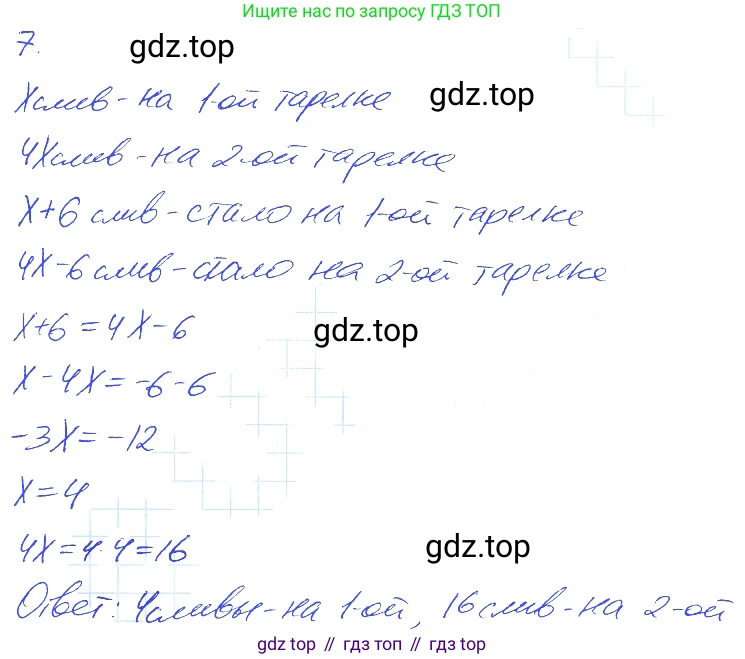 Ищите нас по запросу ГДЗ ТОП
7. gdz.top
X слив - на 1-ой тарелке gdz.top
4X слив - на 2-ой тарелке
X+6 слив - стало на 1-ой тарелке
4X-6 слив - стало на 2-ой тарелке
X+6=4X-6 gdz.top
X-4X=-6-6
-3X=-12
X=4
4X=4·4=16 gdz.top
Ответ: 4 сливы - на 1-ой, 16 слив - на 2-ой
gdz top // гдз топ // gdz top